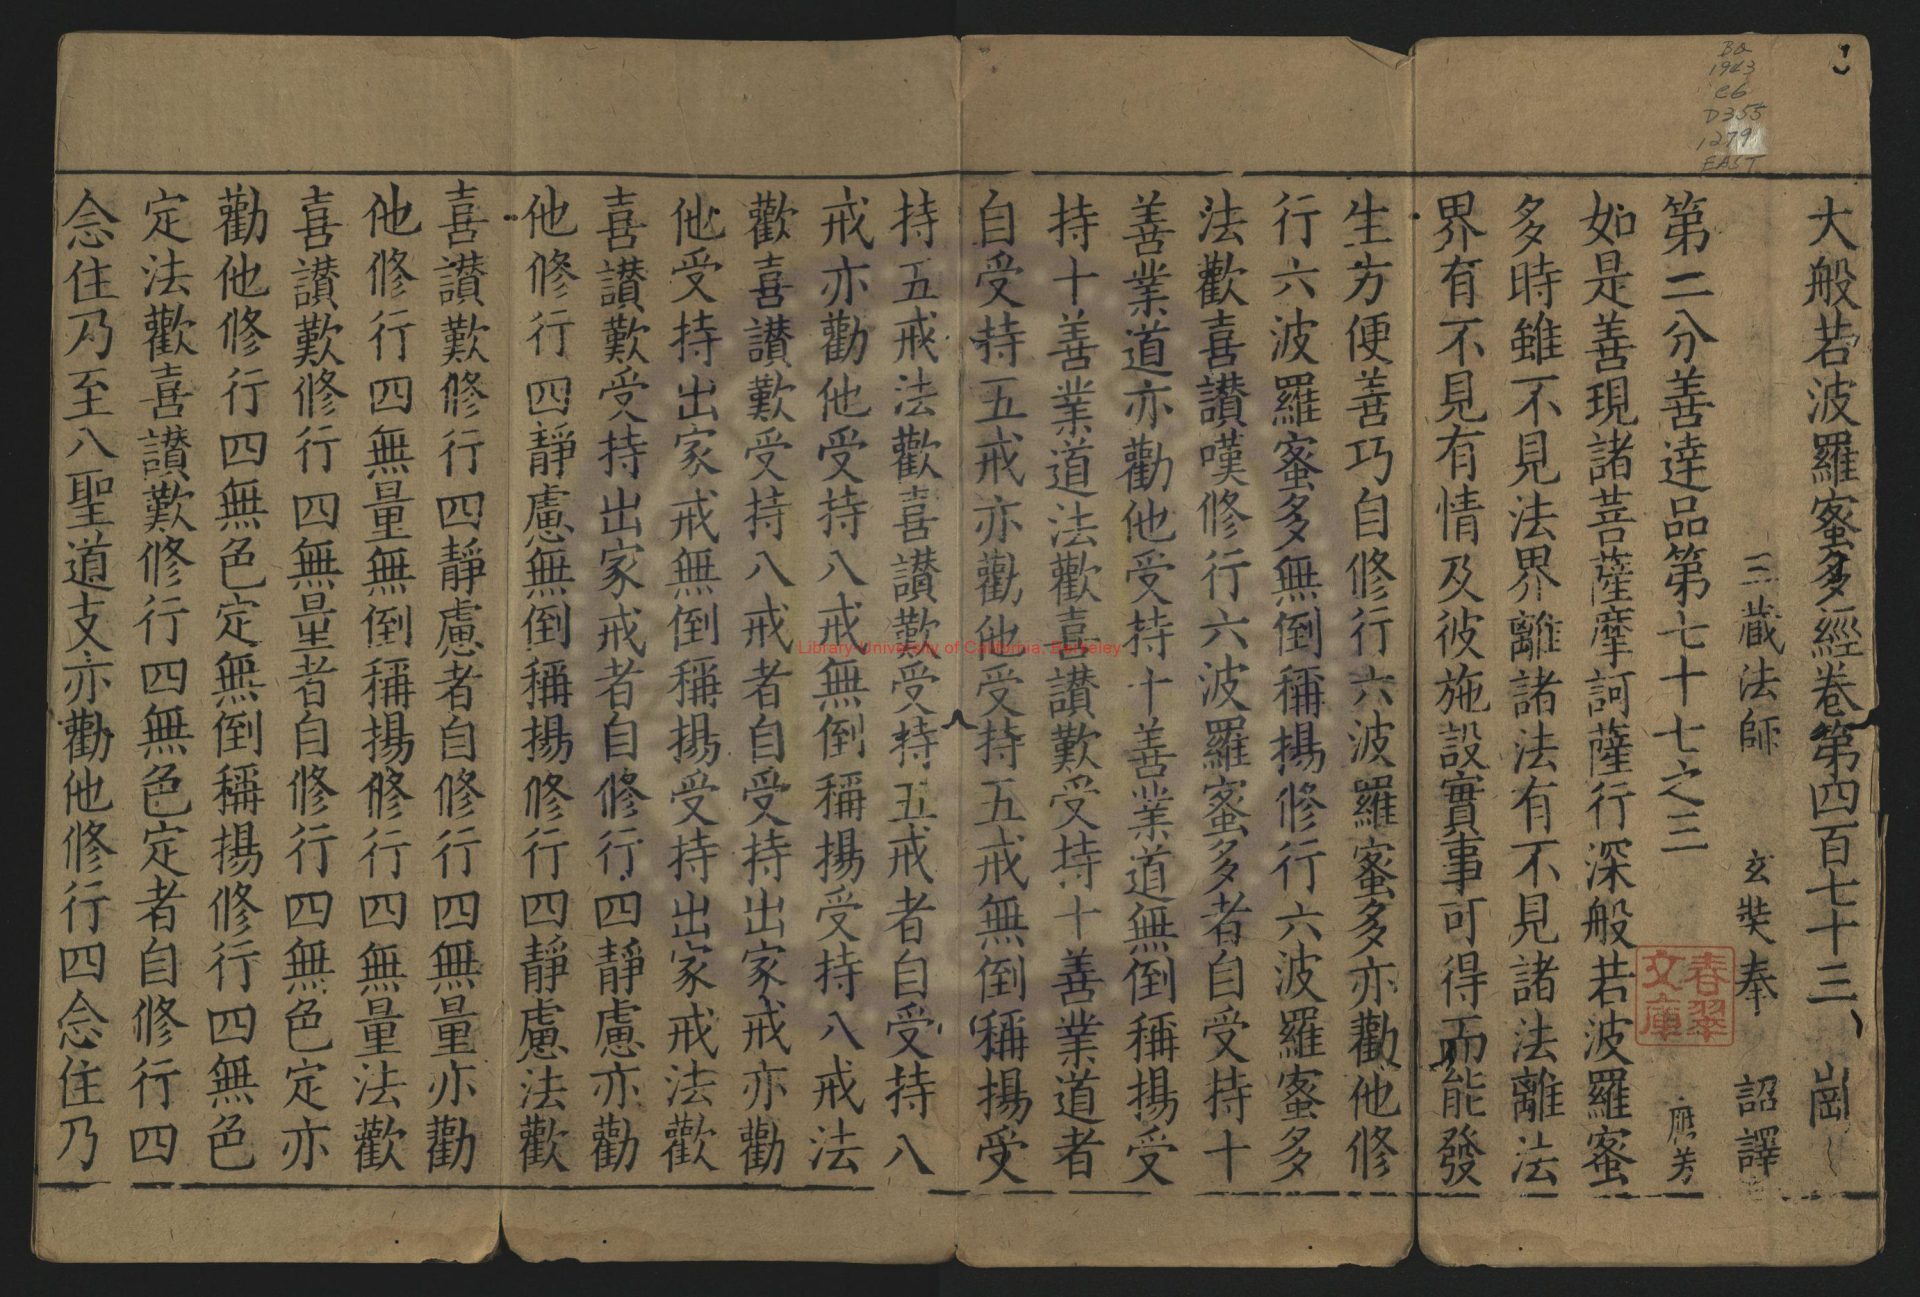 大般若波羅蜜多經卷第四百七十三 崗
三藏法師 玄奘奉 詔譯
第二分善達品第七十七之三
如是善現諸菩薩摩訶薩行深般若波羅蜜
多時雖不見法界離諸法有不見諸法離法
界有不見有情及彼施設實事可得而能發
生方便善巧自修行六波羅蜜多亦勸他修
行六波羅蜜多無倒稱揚修行六波羅蜜多
法歡喜讃嘆修行六波羅蜜多者自受持十
善業道亦勸他受持十善業道無倒稱揚受
持十善業道法歡喜讃歎受持十善業道者
自受持五戒亦勸他受持五戒無倒稱揚受
持五戒法歡喜讃歎受持五戒者自受持八
戒亦勸他受持八戒無倒稱揚受持八戒法
歡喜讃歎受持八戒者自受持出家戒亦勸
他受持出家戒無倒稱揚受持出家戒法歡
喜讃歎受持出家戒者自修行四靜慮亦勸
他修行四靜慮無倒稱揚修行四靜慮法歡
喜讃歎修行四靜慮者自修行四無量亦勸
他修行四無量無倒稱揚修行四無量法歡
喜讃歎修行四無量者自修行四無色定亦
勸他修行四無色定無倒稱揚修行四無色
定法歡喜讃歎修行四無色定者自修行四
念住乃至八聖道支亦勸他修行四念住乃
春翠文庫
BQ
1943
C6
D355
1279
EAST
Library-University of California, Berkeley